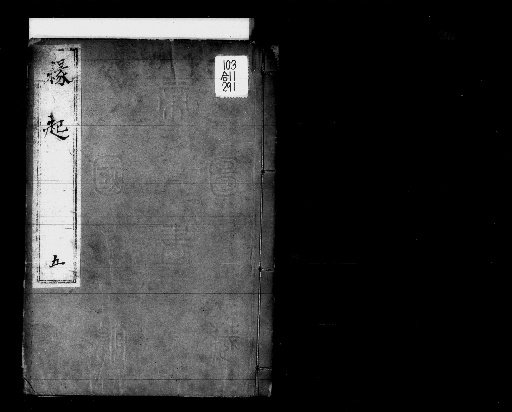 縁起 五
103
合11
291